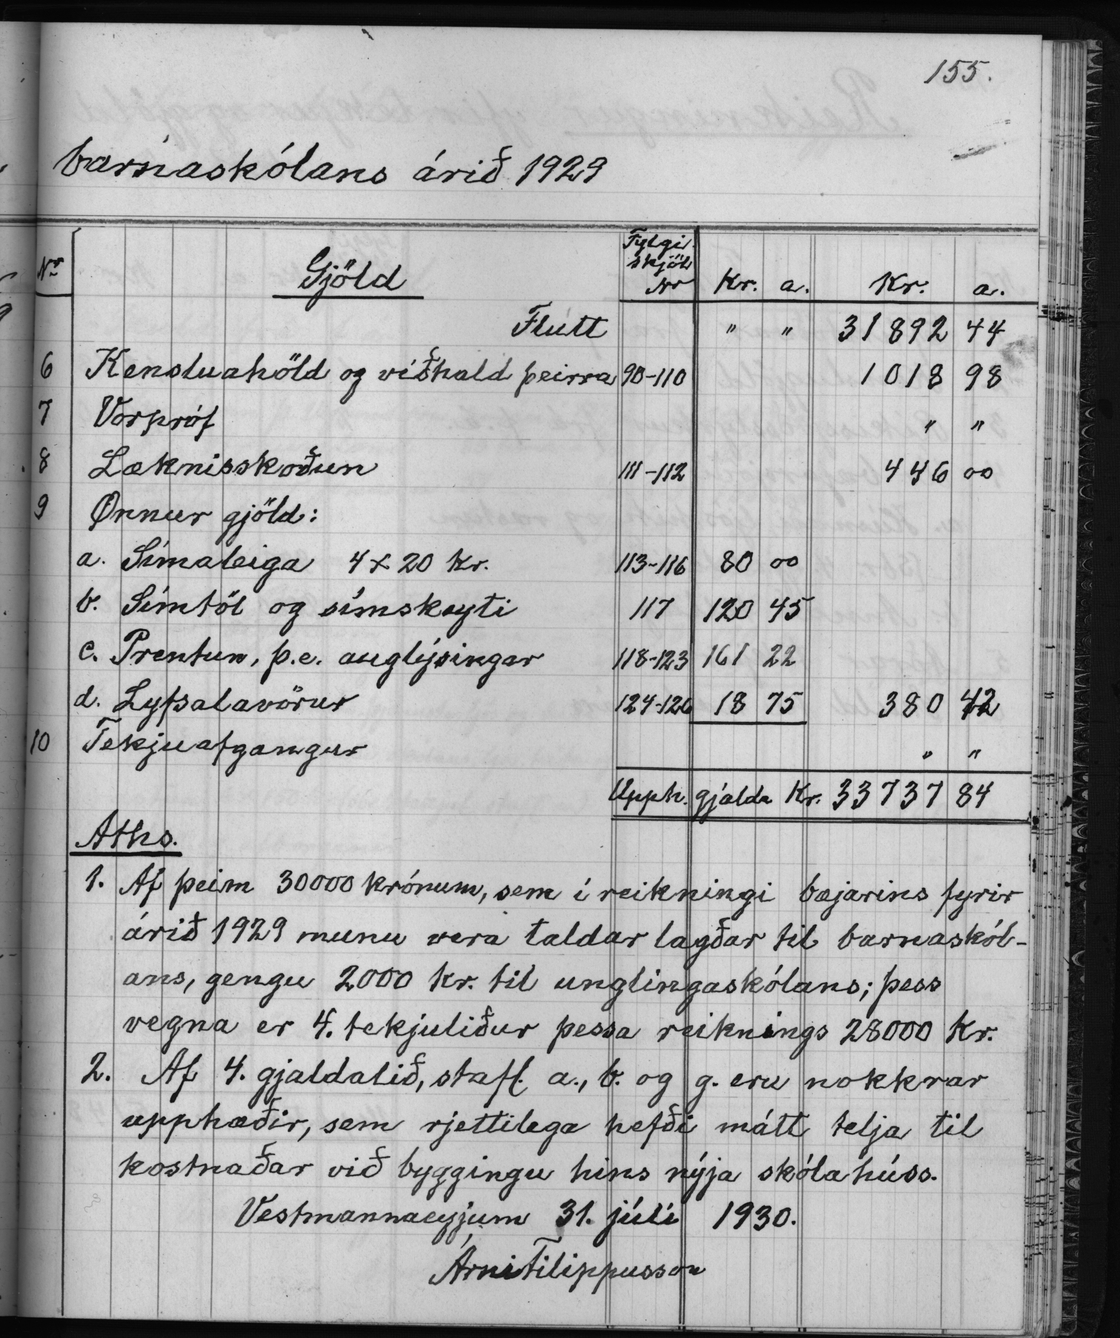 155.
barnaskólans árið 1929
Nr Gjöld Fylgiskjöl Nr Kr. a. Kr. a.
Flutt " " 31892 44
6 Kensluahöld og viðhald þeirra 90-110 1018 98
7 Vorpróf " "
8 Læknisskoðun 111-112 446 00
9 Önnur gjöld:
a. Símaleiga 4 x 20 kr. 113-116 80 00
b. Símtöl og símskeyti 117 120 45
c. Prentun, þ.e. auglýsingar 118-123 161 22
d. Lyfsalavörur 124-126 18 75 380 42
10 Tekjuafgangur " "
Upph. gjalda Kr. 33737 84
Aths.
1. Af þeim 30000 krónum, sem í reikningi bæjarins fyrir
árið 1929 munu vera taldar lagðar til barnaskól-
ans, gengu 2000 kr. til unglingaskólans; þess
vegna er 4. tekjuliður þessa reiknings 28000 kr.
2. Af 4. gjaldalið, stafl. a., b. og g. eru nokkrar
upphæðir, sem rjettilega hefði mátt telja til
kostnaðar við byggingu hins nýja skólahúss.
Vestmannaeyjum 31. júlí 1930.
Árni Filippusson